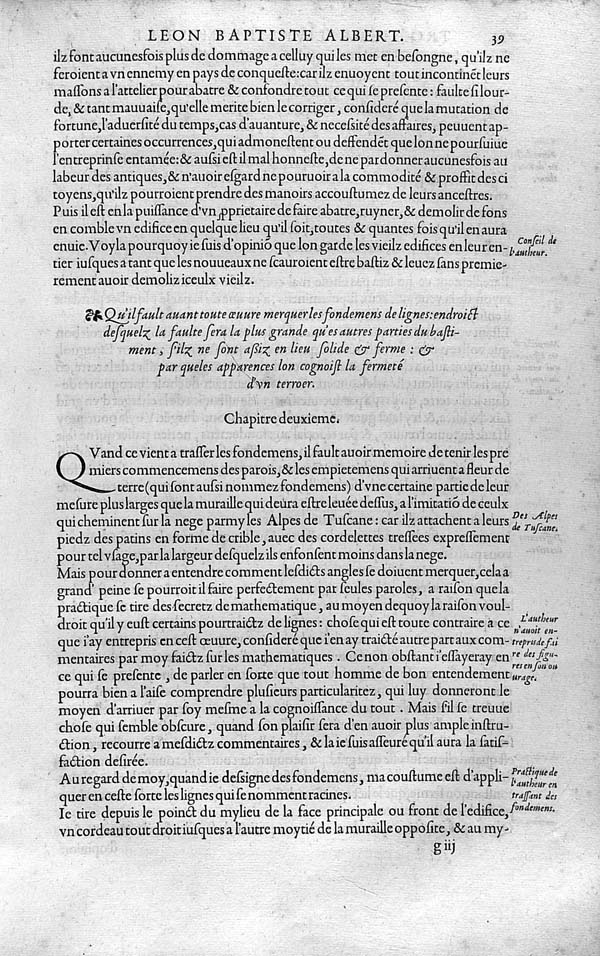 LEON BAPTISTE ALBERT. 39
ilz font aucunesfois plus de dommage a celluy qui les met en besongne, qu'ilz ne
feroient a vn ennemy en pays de conqueste: car ilz enuoyent tout incontinẽt leurs
massons a l'attelier pour abatre & confondre tout ce qui se presente: faulte si lour-
de, & tant mauuaise, qu'elle merite bien le corriger, consideré que la mutation de
fortune, l'aduersité du temps, cas d'auanture, & necessité des affaires, peuuent ap-
porter certaines occurrences, qui admonestent ou deffendẽt que lon ne poursuiue
l'entreprinse entamée: & aussi est il mal honneste, de ne pardonner aucunesfois au
labeur des antiques, & n'auoir esgard ne pouruoir a la commodité & proffit des ci
toyens, qu'ilz pourroient prendre des manoirs accoustumez de leurs ancestres.
Puis il est en la puissance d'vn ꝓprietaire de faire abatre, ruyner, & demolir de fons
en comble vn edifice en quelque lieu qu'il soit, toutes & quantes fois qu'il en aura
enuie. Voyla pourquoy ie suis d'opiniõ que lon garde les vieilz edifices en leur en-
tier iusques a tant que les nouueaux ne scauroient estre bastiz & leuez sans premie-
rement auoir demoliz iceulx vieilz.
Conseil de
l'autheur.
Qu'il fault auant toute œuure merquer les fondemens de lignes: endroict
desquelz la faulte sera la plus grande qu'es autres parties du basti-
ment, s'ilz ne sont aßiz en lieu solide & ferme: &
par queles apparences lon cognoist la fermeté
d'vn terroer.
Chapitre deuxieme.
QVand ce vient a trasser les fondemens, il fault auoir memoire de tenir les pre
miers commencemens des parois, & les empietemens qui arriuent a fleur de
terre (qui sont aussi nommez fondemens) d'vne certaine partie de leur
mesure plus larges que la muraille qui deura estre leuée dessus, a l'imitatiõ de ceulx
qui cheminent sur la nege parmy les Alpes de Tuscane: car ilz attachent a leurs
piedz des patins en forme de crible, auec des cordelettes tressées expressement
pour tel vsage, par la largeur desquelz ils enfonsent moins dans la nege.
Des Alpes
de Tuscane.
Mais pour donner a entendre comment lesdicts angles se doiuent merquer, cela a
grand' peine se pourroit il faire perfectement par seules paroles, a raison que la
practique se tire des secretz de mathematique, au moyen dequoy la raison voul-
droit qu'il y eust certains pourtraictz de lignes: chose qui est toute contraire a ce
que i'ay entrepris en cest œuure, consideré que i'en ay traicté autre part aux com-
mentaires par moy faictz sur les mathematiques. Ce non obstant i'essayeray en
ce qui se presente, de parler en sorte que tout homme de bon entendement
pourra bien a l'aise comprendre plusieurs particularitez, qui luy donneront le
moyen d'arriuer par soy mesme a la cognoissance du tout. Mais s'il se treuue
chose qui semble obscure, quand son plaisir sera d'en auoir plus ample instru-
ction, recourre a mesdictz commentaires, & la ie suis asseuré qu'il aura la satis-
faction desirée.
L'autheur
n'auoit en-
trepris de fai
re des figu-
res en son ou
urage.
Au regard de moy, quand ie dessigne des fondemens, ma coustume est d'appli-
quer en ceste sorte les lignes qui se nomment racines.
Ie tire depuis le poinct du mylieu de la face principale ou front de l'edifice,
vn cordeau tout droit iusques a l'autre moytié de la muraille opposite, & au my-
Practique de
l'autheur en
trassant des
fondemens.
g iij